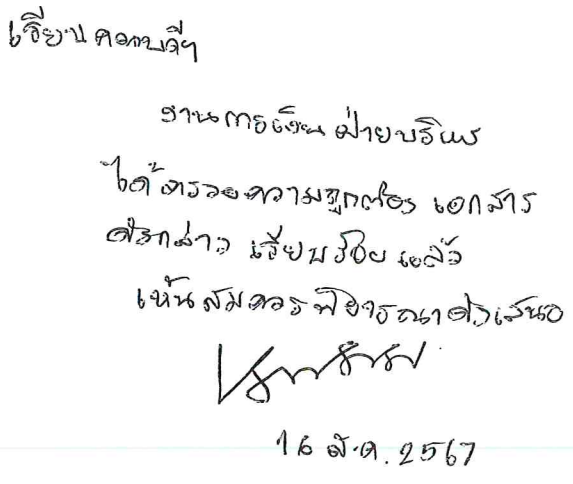 เรียน คณบดีฯ
งานการเงิน ฝ่ายบริหาร
ได้ตรวจความถูกต้อง เอกสาร
ดังกล่าว เรียบร้อย แล้ว
เห็นสมควรพิจารณาดังเสนอ
16 ส.ค. 2567